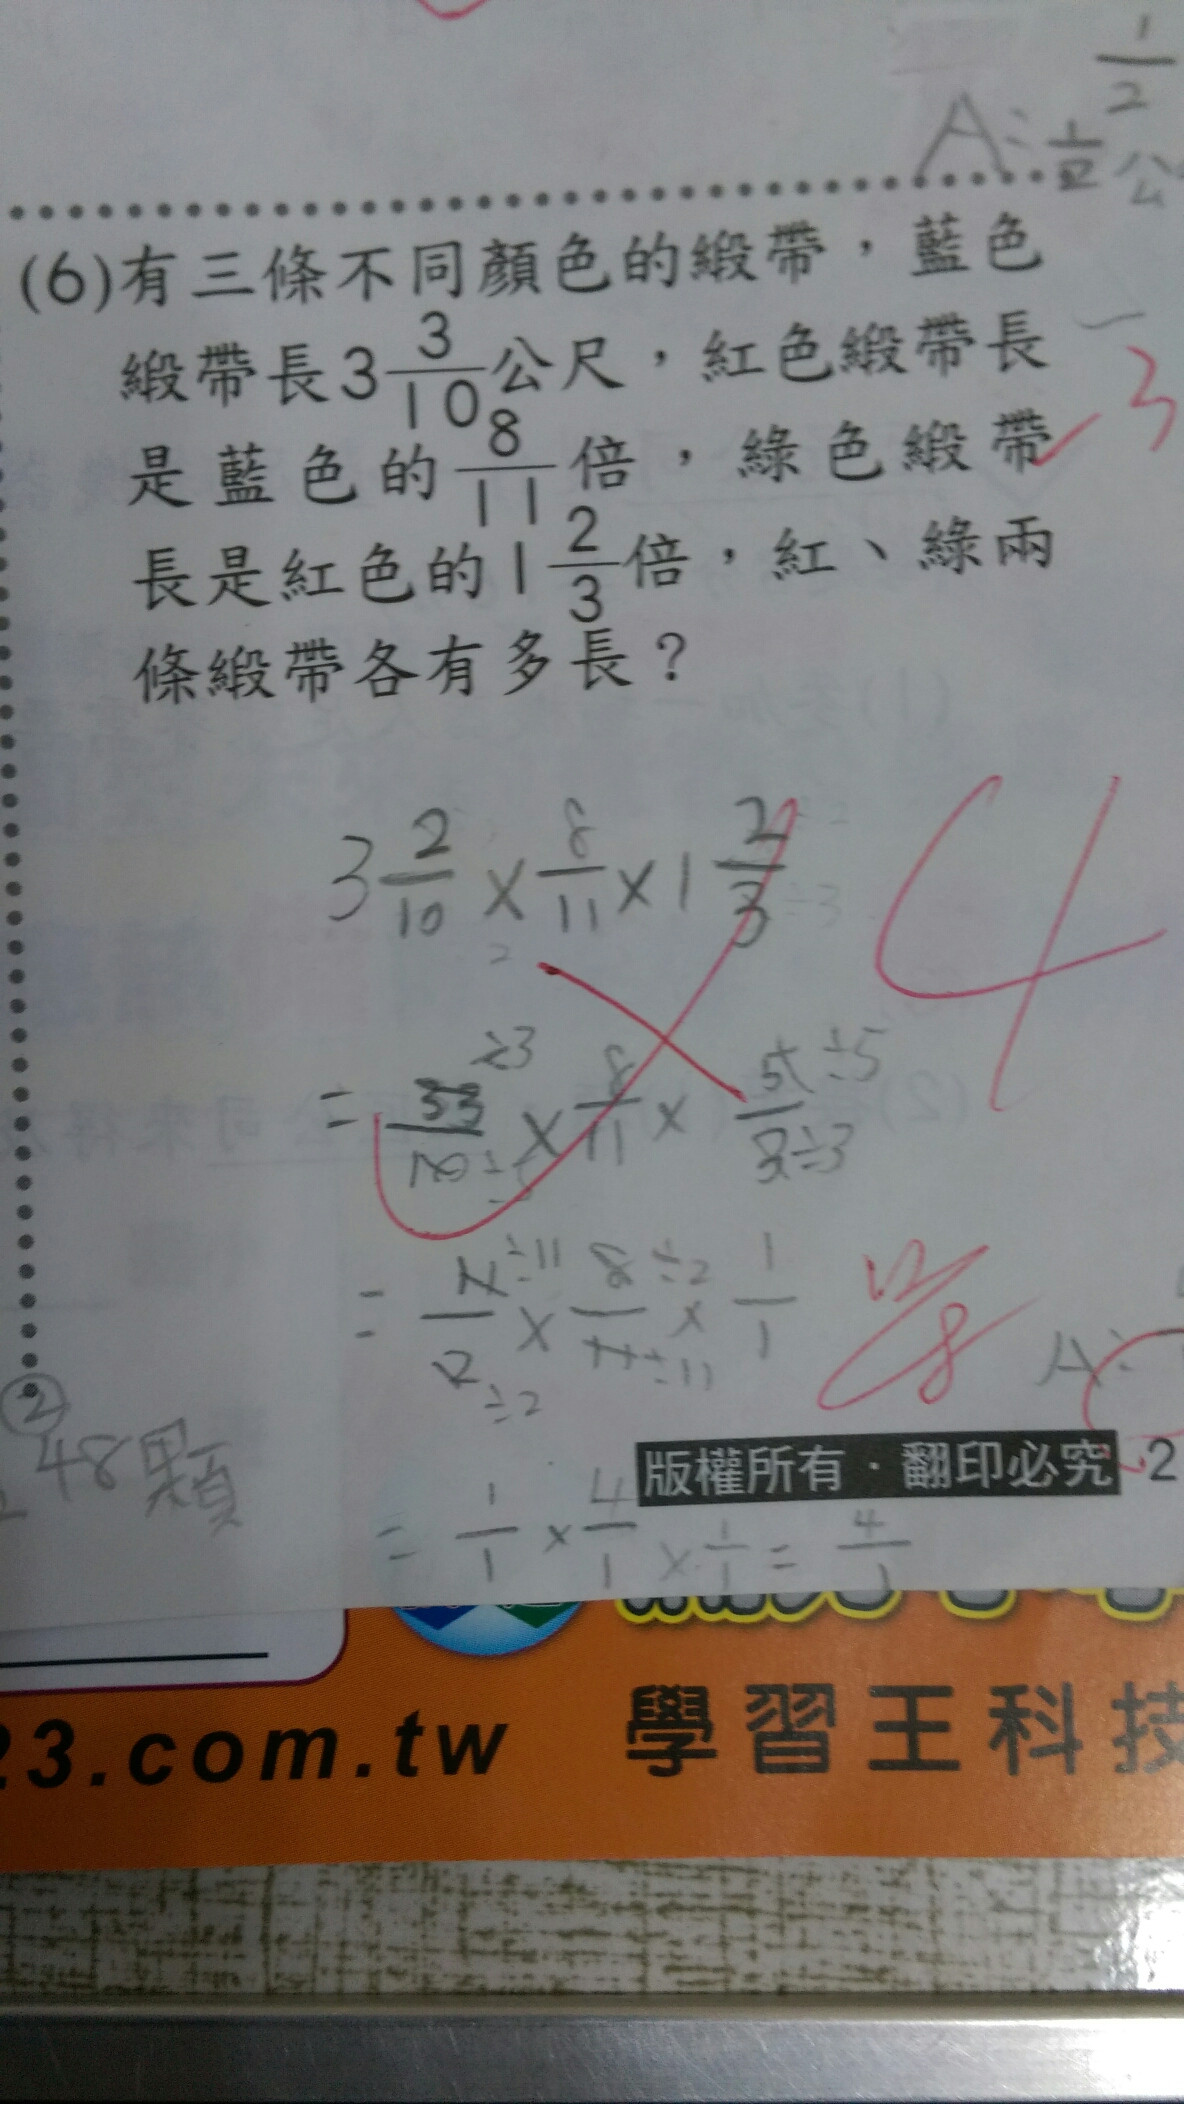 1/2
A: 1/2 公
(6)有三條不同顏色的緞帶，藍色
緞帶長3 3/10公尺，紅色緞帶長
是藍色的8/11倍，綠色緞帶
長是紅色的1 2/3倍，紅、綠兩
條緞帶各有多長？
3 2/10 × 8/11 × 1 2/3
= 33/10 × 8/11 × 5/3
÷3 ÷5 ÷3
4
= 11/2 × 8/11 × 1/1
÷11 ÷2 ÷11 ÷2
A:
② 48顆
版權所有・翻印必究 2
= 1/1 × 4/1 × 1/1 = 4/1
23.com.tw 學習王科技